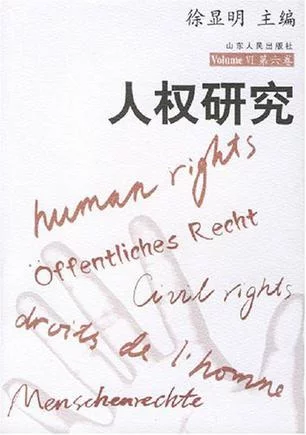 徐显明 主编
山东人民出版社
Volume VI 第六卷
人权研究
human rights
Öffentliches Recht
Civil rights
droits de l'homme
Menschenrechte